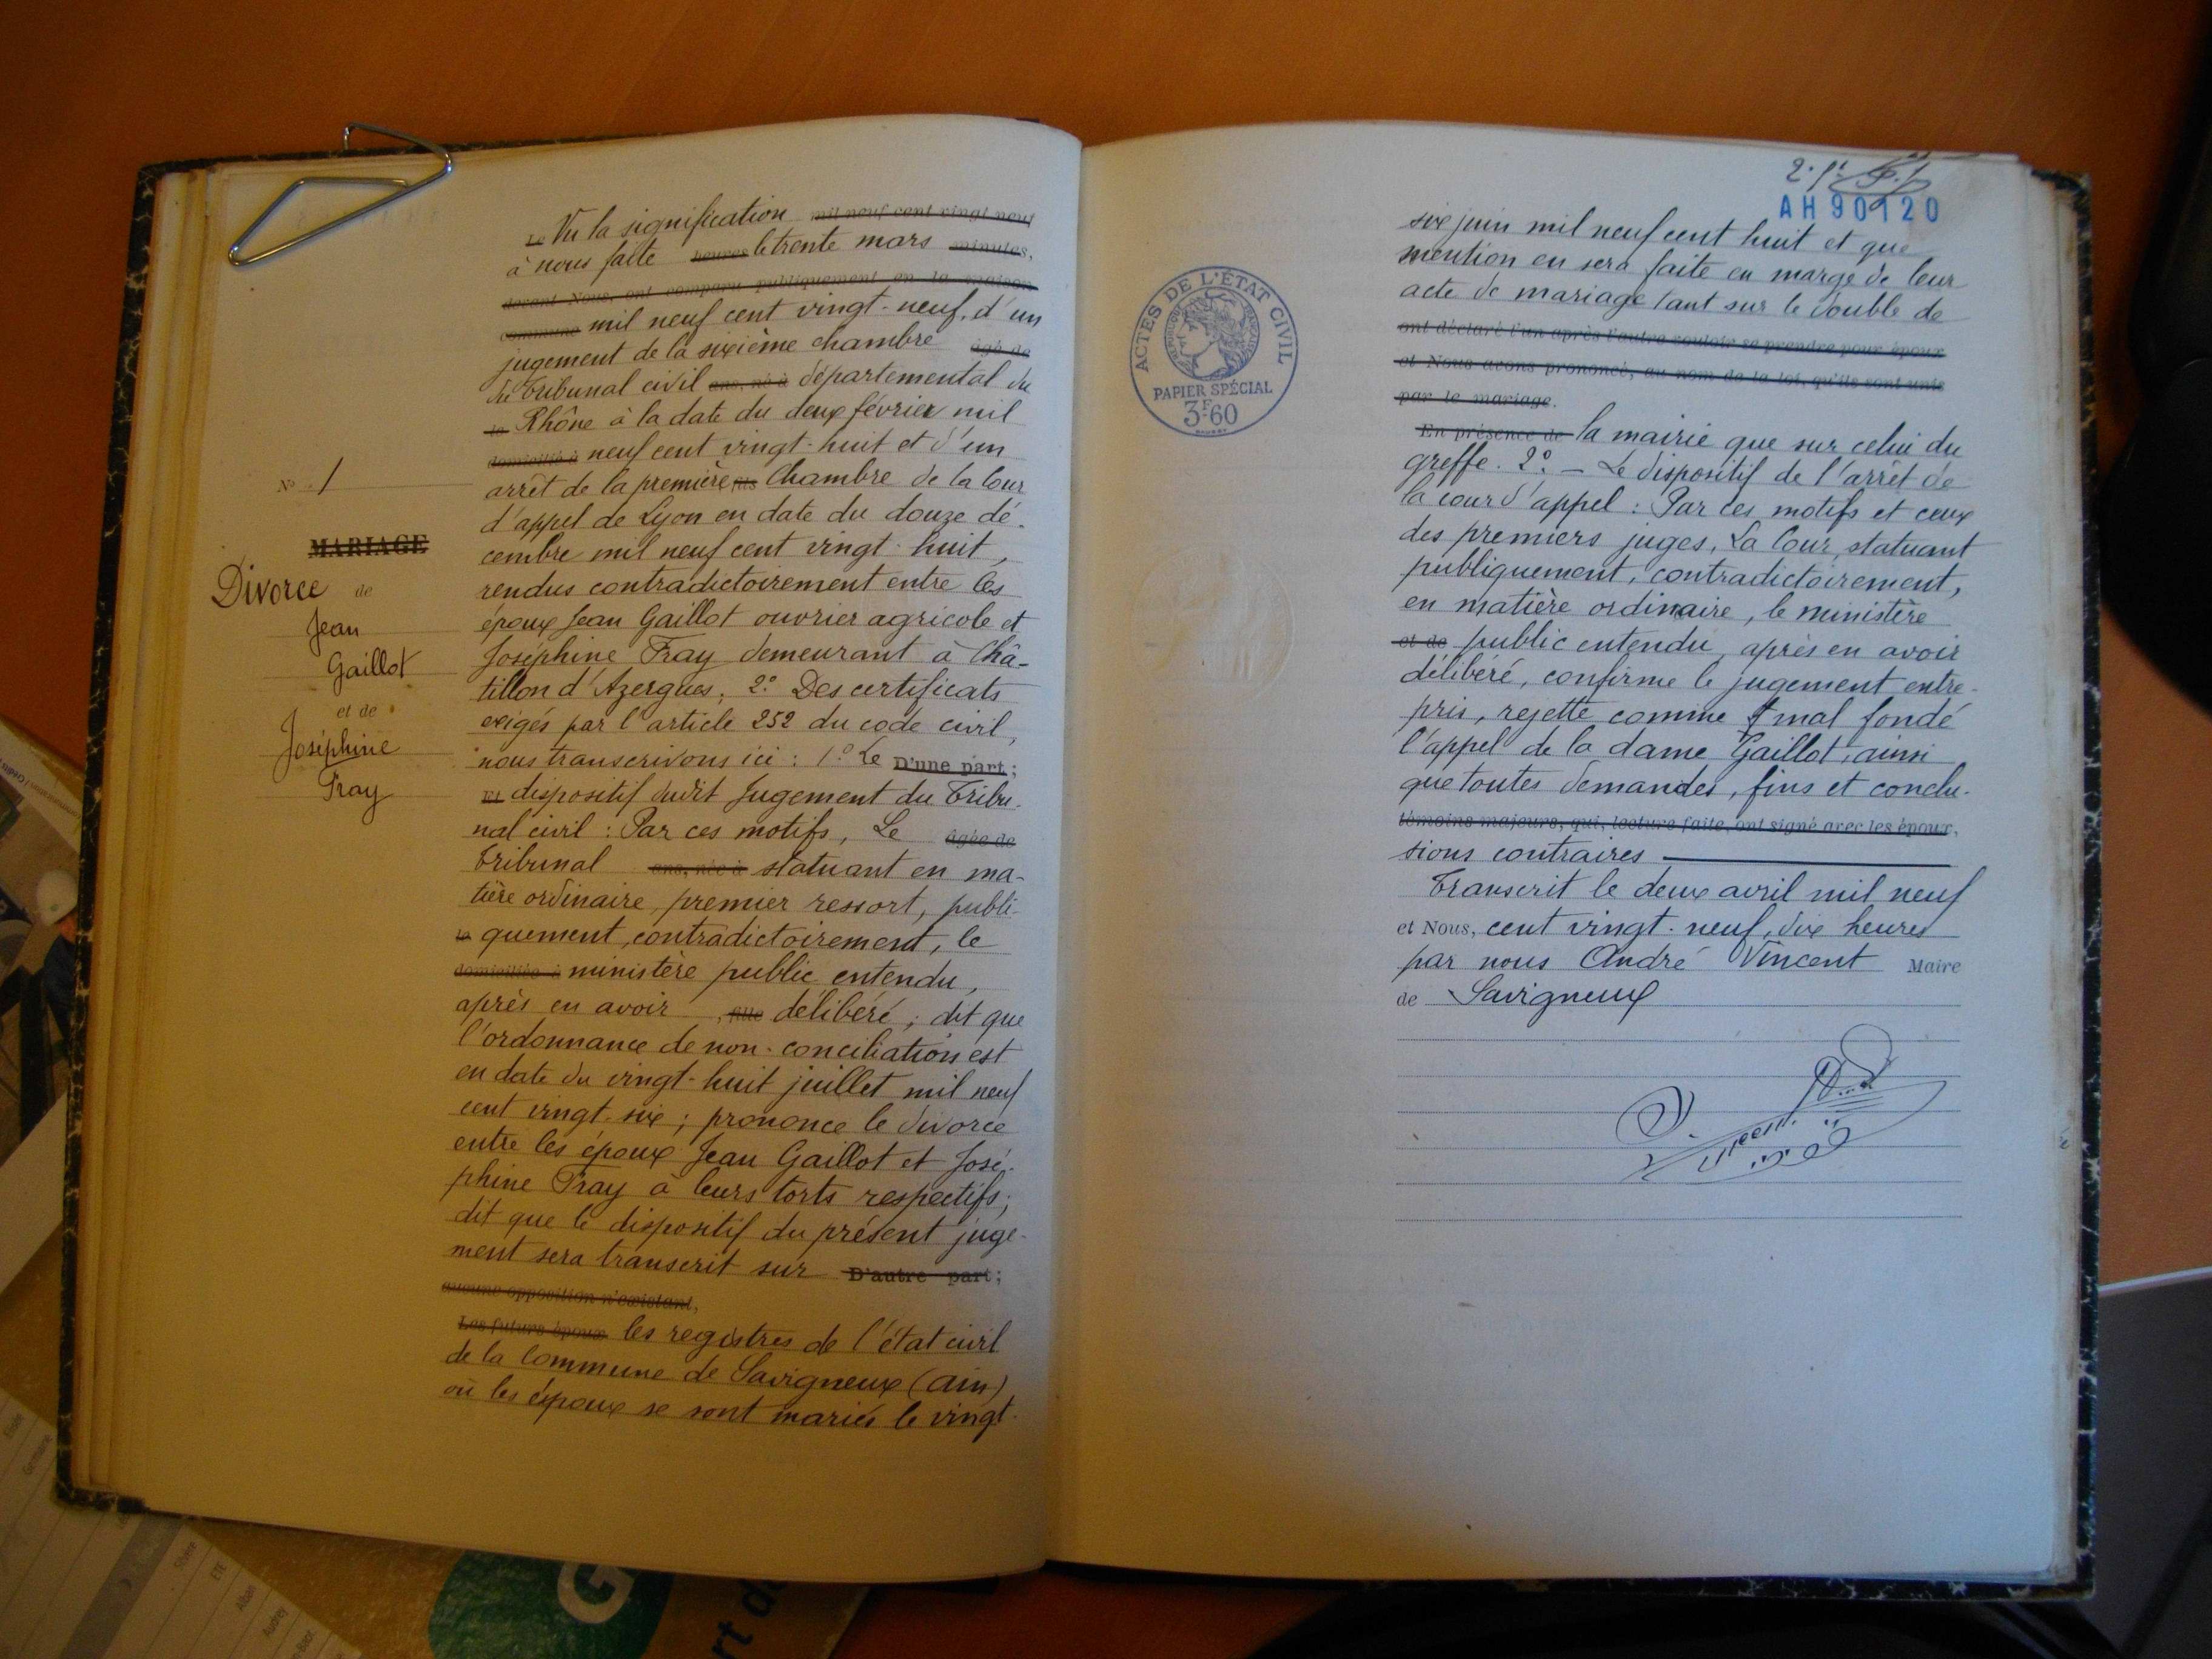 Le Vu la signification mil neuf cent vingt neuf
à nous faite heures le trente mars minutes,
devant Nous, ont comparu publiquement en la maison
commune mil neuf cent vingt-neuf, d'un
jugement de la sixième chambre âgé de
du Tribunal civil ans, né à départemental du
le Rhône à la date du deux février mil
domicilié à neuf cent vingt-huit et d'un
arrêt de la première fils Chambre de la Cour
d'appel de Lyon en date du douze dé-
cembre mil neuf cent vingt-huit,
rendus contradictoirement entre les
époux Jean Gaillot ouvrier agricole et
Joséphine Fray demeurant à Châ-
tillon d'Azergues; 2° Des certificats
exigés par l'article 252 du code civil,
nous transcrivons ici : 1° Le D'une part;
Et dispositif dudit Jugement du Tribu-
nal civil : Par ces motifs, Le âgée de
Tribunal ans, née à statuant en ma-
tière ordinaire, premier ressort, publi-
le quement, contradictoirement, le
domiciliée à ministère public entendu,
après en avoir , fille délibéré ; dit que
l'ordonnance de non-conciliation est
en date du vingt-huit juillet mil neuf
cent vingt-six ; prononce le divorce
entre les époux Jean Gaillot et José-
phine Fray à leurs torts respectifs;
dit que le dispositif du présent juge-
ment sera transcrit sur D'autre part;
aucune opposition n'existant,
Les futurs époux les registres de l'état civil
de la Commune de Savigneux (Ain)
où les époux se sont mariés le vingt-
N° 1
MARIAGE
Divorce de
Jean
Gaillot
et de
Joséphine
Fray
2. ft
AH90120
six juin mil neuf cent huit et que
mention en sera faite en marge de leur
acte de mariage tant sur le double de
ont déclaré l'un après l'autre vouloir se prendre pour époux
et Nous avons prononcé, au nom de la loi, qu'ils sont unis
par le mariage.
En présence de la mairie que sur celui du
greffe. 2° - Le dispositif de l'arrêt de
la cour d'appel : Par ces motifs et ceux
des premiers juges, La Cour, statuant
publiquement, contradictoirement,
en matière ordinaire, le ministère
et de public entendu, après en avoir
délibéré, confirme le jugement entre-
pris, rejette comme mal fondé
l'appel de la dame Gaillot, ainsi
que toutes demandes, fins et conclu-
témoins majeurs, qui, lecture faite, ont signé avec les époux,
sions contraires
Transcrit le deux avril mil neuf
et Nous, cent vingt-neuf, dix heures
par nous André Vincent Maire
de Savigneux
Vincent
ACTES DE L'ÉTAT CIVIL
RÉPUBLIQUE FRANÇAISE
PAPIER SPÉCIAL
3F60
G
rt d
Silvère
ETE
Alban
Audrey
Germaine